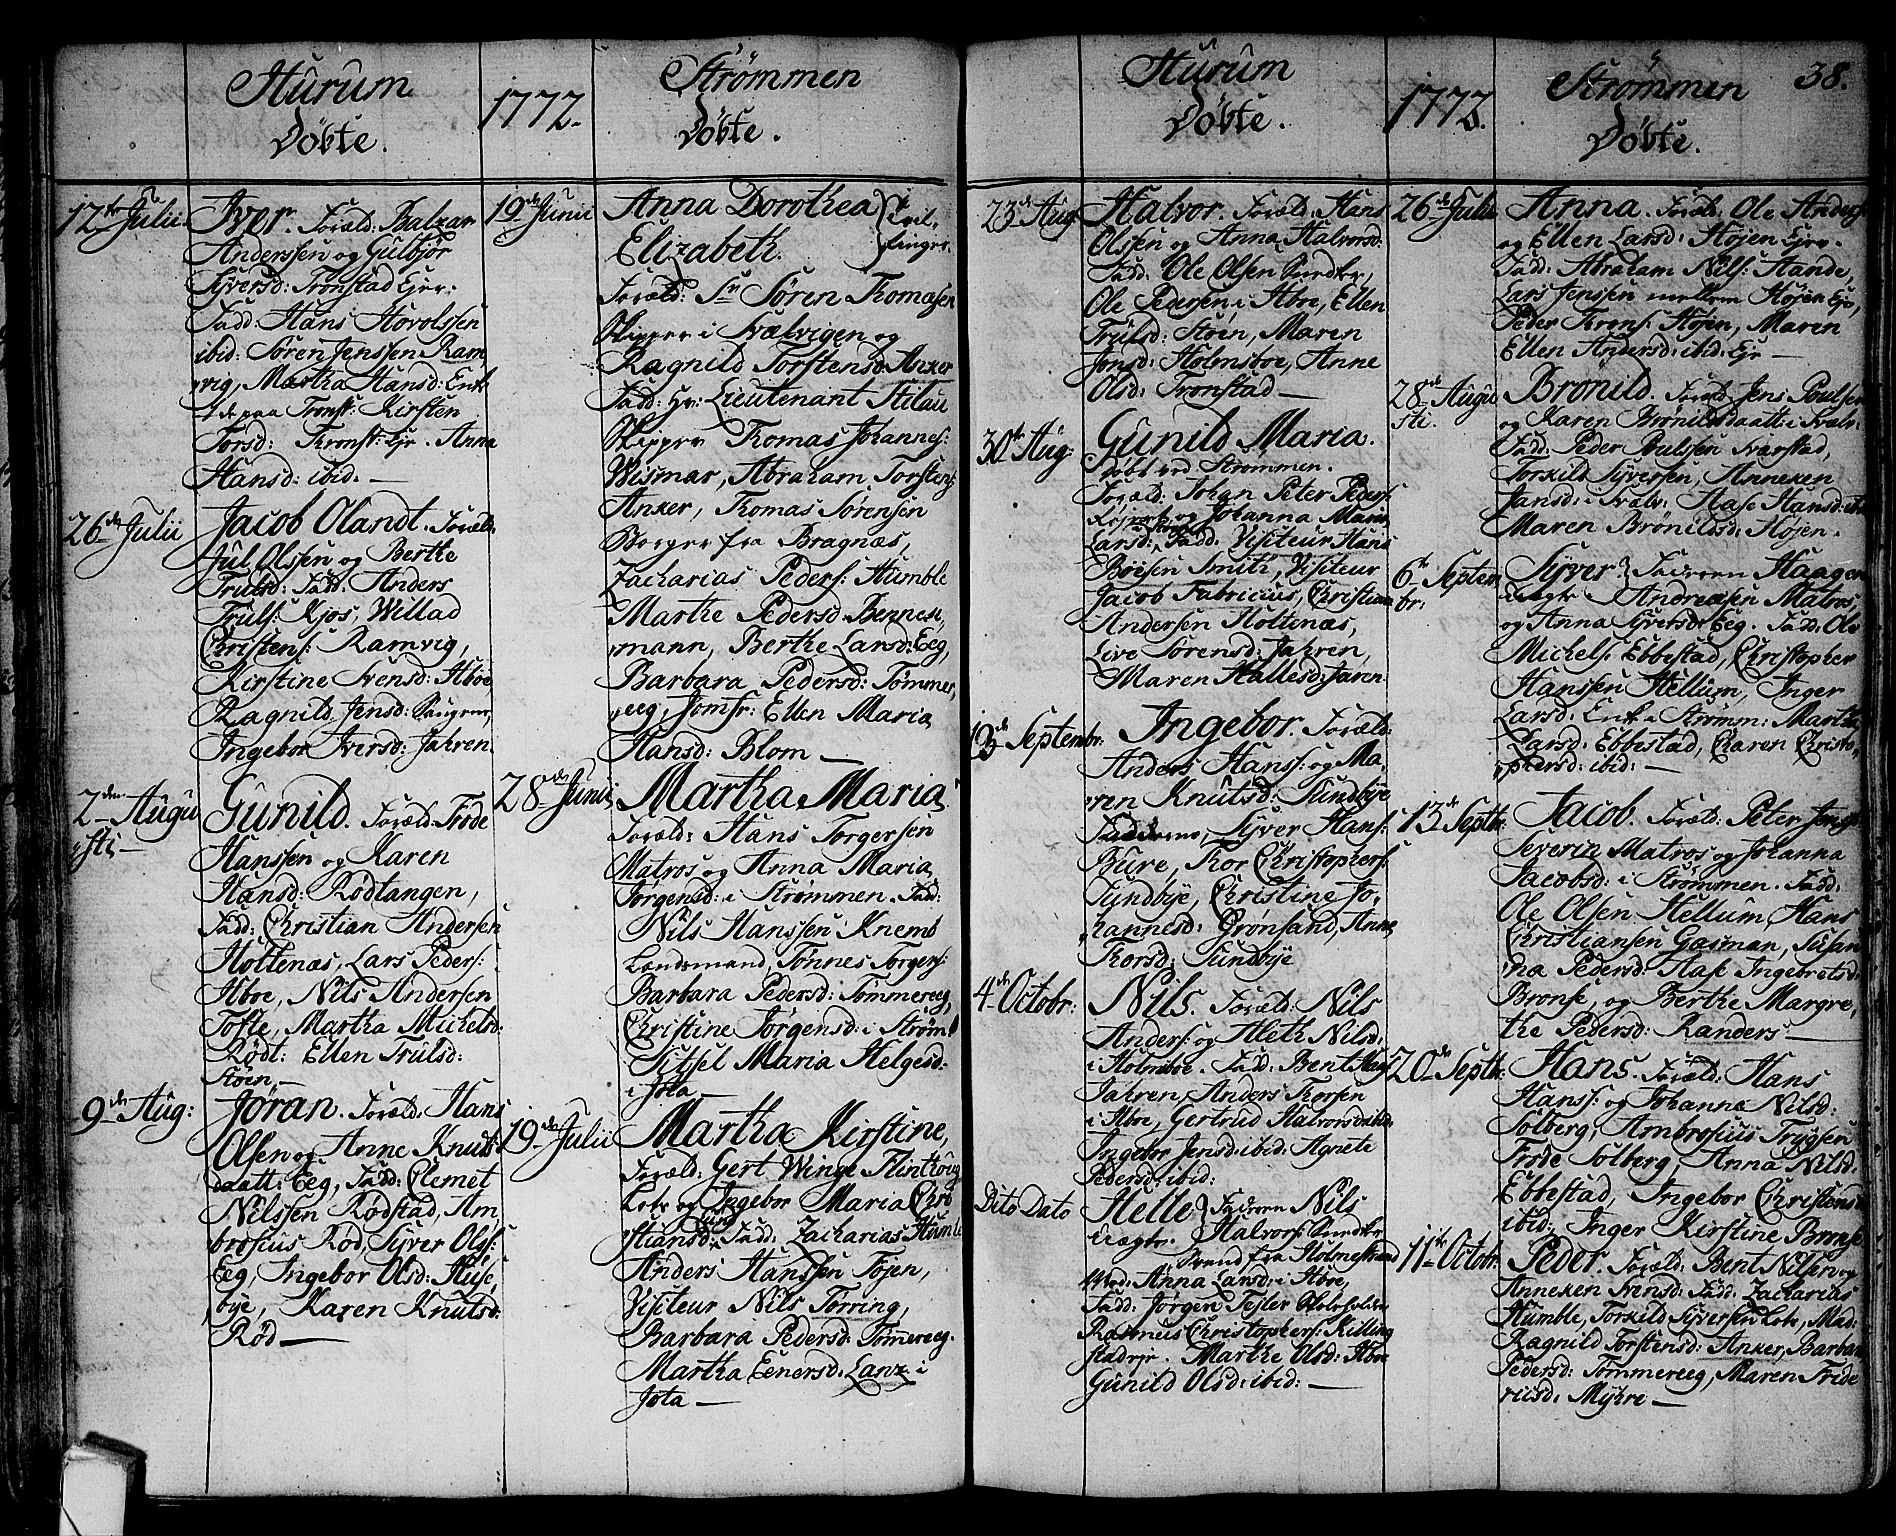 Hurum
Döbte.
1772.
Strømmen
Döbte.
12te Julii.
Iver. Foræld: Balzar
Anderssen og Gulbjör
Syversd: Tronstad Ejer.
Fadd: Hans Hovolssen
ibid: Søren Jenssen Ram
vig, Martha Hansd: Enk
paa Tronst: Kirsten
Torsd: Tronst: Eje. Anna
Hansd: ibid. —
26de Julii
Jacob Olandt. Foræld:
Jul Olssen og Berthe
Trulsd: Fadd: Anders
Truls: Kjos, Willad
Christens: Ramvig,
Kirstine Svensd: Åboe
Ragnild Jensd:
Ingebor Iversd: Jahren.
2den Augu
sti —
Gunild. Foræld: Frode
Hanssen og Karen
Hansd: Rödtangen,
Fadd: Christian Andersen
Holtenæs, Lars Peders:
Åboe, Nils Andersen
Tofte, Martha Michelsd:
Rødt: Ellen Trulsd:
Støen —
9de Aug:
Jöran. Foræld: Hans
Olssen og Anne Knuts
daatt: Eeg, Fadd: Clemet
Nilssen Rødstad, Am
brosius Rød, Syver Ols:
Eeg, Ingebor Olsd: Huse
bye, Karen Knutsd:
Rød —
19de Junii
Anna Dorothea
Elizabeth.
Tvil
linger.
Foræld: Sr Søren Thomasen
Skipper i Svælvigen og
Ragnild Torstensd: Anker
Fadd: Hr: Lieutenant Stilau
Skipper Thomas Johannes:
Wismar, Abraham Torstens:
Anker, Thomas Sørensen
Borger fra Bragnæs,
Zacharias Peders: Humble
Marthe Pedersd: Bennese
mann, Berthe Larsd: Eeg,
Barbara Pedersd: Tømmer
eeg, Jomfr: Ellen Maria
Hansd: Blom —
28de Junii
Martha Maria
Foræld: Hans Torgersen
Matros og Anna Maria
Jørgensd: i Strømmen. Fadd:
Nils Hanssen Knemb
Landsmand, Tønnes Torgers:
Barbara Pedersd: Tømmereeg,
Christine Jørgensd: i Strøm
Sitsel Maria Helgesd:
i Jota —
19de Julii
Martha Kirstine,
Foræld: Gert Winge Flinthoug
Lots og Ingebor Maria Chri
stiansd: Fadd: Zacharias Humle
Anders Hanssen Töjen,
Visiteur Nils Torring,
Barbara Pedersd: Tømereeg.
Martha Eenersd: Lanz i
Jota —
Hurum
Döbte.
1772.
Strømmen
Döbte.
38.
23de Aug
Halvor. Foræld: Hans
Olsen og Anna Halvorsd:
Fadd: Ole Olsen Rundtør,
Ole Pedersen i Åboe, Ellen
Trulsd: Støen, Maren
Jonsd: Holmsboe, Anne
Olsd: Tronstad —
30te Aug:
Gunild Maria.
Döbt ved Strømmen.
Foræld: Johan Peter Peders:
og Johanna Maria
Larsd: Fadd: Visiteur Hans
Boisen Smith, Visiteur
Jacob Fabricius, Christian
Andersen Holtenæs,
Live Sørensd: Jahren,
Maren Hallesd: Jaren
13de Septenbr:
Ingebor. Foræld:
Anders Hans: og Ma
ren Knutsd: Sundbye
Fadderne, Syver Hans:
Bure, Thor Christophers:
Sundbye, Christine Jo
hannesd: Grønsand, Anne
Thorsd: Sundbye
4de Octobr:
Nils. Foræld: Nils
Anders: og Aleth Nilsd:
i Holmsboe. Fadd: Bent Hans
Jahren, Anders Thorsen
i Åboe, Gertrud Halvorsd: ibid:
Ingebor Jensd: ibid: Agnete
Pedersd: ibid:
Dito Dato
Helle
Uægte.
Faderen Nils
Halvors: Rundtør
Svend fra Holmestrand
Mod: Anna Larsd: i Åboe,
Fadd: Jørgen Fejler Skoleholder
Rasmus Christophers: Killing
stadejr. Marthe Olsd: Åboe
Gunild Olsd: ibid: —
26de Julii
Anna. Foræld: Ole Anders:
og Ellen Larsd: Højen Ejer.
Fadd: Abraham Nils: Sande,
Lars Jenssen mellem Højen Eje,
Peder Trons: Højen, Maren
Ellen Andersd: ibid: Eje —
28de Augu
sti.
Brønild. Foræld: Jens Poulsen
og Karen Brønilsdaatt: i Svælv:
Fadd: Peder Poulsen Sværstad,
Torkild Syversen, Anneken
Jansd: i Svælv. Aase Hansd: ibid
Maren Brønilsd: Højen.
6te Septem
br:
Syver
uægte
Faderen Haagen
Andreæsen Matros,
og Anna Syversd: Eeg. Fadd: Ole
Michels: Ebbestad, Christopher
Hanssen Hellum, Inger
Larsd: Enk i Strømm: Martha
Larsd: Ebbestad, Charen Christo
phersd: ibid: —
13de Septbr:
Jacob. Foræld: Peter Jens:
Severin Matros og Johanna
Jacobsd: i Strømmen. Fadd:
Ole Olsen Hellum, Hans
Christiansen Gasman, Susan
na Pedersd: Aase Ingebretsd:
Bronse, og Berthe Margre
the Pedersd: Randers —
20de Septbr:
Hans. Foræld: Hans
Hans: og Johanne Nilsd:
Solberg, Ambrosius Trygsen
Frode Solberg, Anna Nilsd:
Ebbestad, Ingebor Christensd
ibid: Inger Kirstine Bronse
11te Octobr:
Peder. Foræld: Bent Nilsen og
Anneken Svensd: Fadd: Zacharias
Humble, Torkild Syversen Lots, Mad:
Ragnild Torstensd: Anker, Barbara
Pedersd: Tømmereeg, Maren Fride
richsd: Myhre —